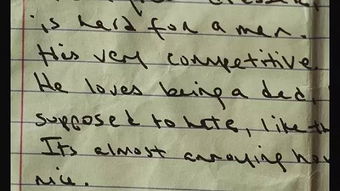 is hard for a man.
His very competitive
He loves being a dad,
supposed to hate, like th
Its almost annoying how
nice.